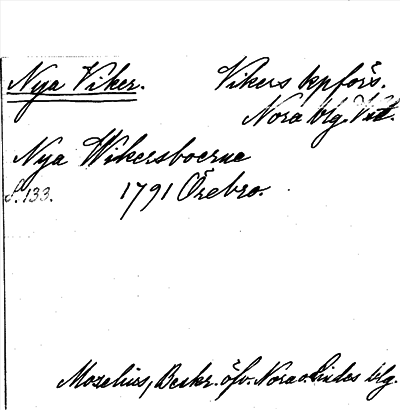 Nya Viker. Vikers kpförs.
Nora blg. Vstl.
Nya Wikersboerne
S. 133. 1791 Örebro.
Mozelius, Beskr. öfv. Nora o. Lindes blg.